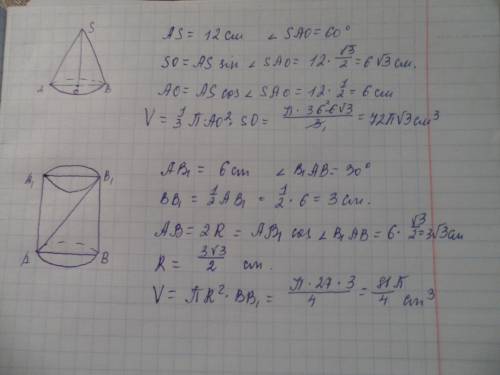 S
A
O
B
AS = 12 см ∠SAO = 60°
SO = AS sin ∠SAO = 12 · √3/2 = 6√3 см.
AO = AS cos ∠SAO = 12 · 1/2 = 6 см
V = 1/3 π · AO² · SO = π · 36 · 6√3 / 3 = 72π√3 см³
A₁
B₁
A
B
AB₁ = 6 cm ∠B₁AB = 30°
BB₁ = 1/2 AB₁ = 1/2 · 6 = 3 см.
AB = 2R = AB₁ cos ∠B₁AB = 6 · √3/2 = 3√3 см
R = 3√3/2 см.
V = πR² · BB₁ = π · 27 · 3 / 4 = 81π/4 cm³